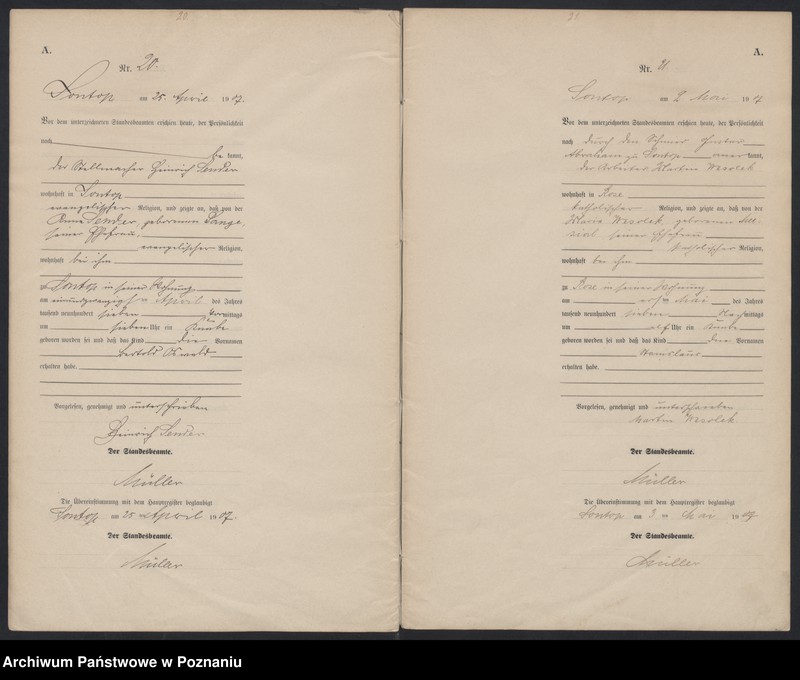 20.
A.
Nr. 20.
Lontop am 25 April 1907.
Vor dem unterzeichneten Standesbeamten erschien heute, der Persönlichkeit
nach be kannt,
der Stellmacher Heinrich Sender
wohnhaft in Lontop
evangelischer Religion, und zeigte an, daß von der
Anna Sender, geborenen Lange,
seiner Ehefrau,
evangelischer Religion,
wohnhaft bei ihm
zu Lontop in seiner Wohnung
am einundzwanzigsten April des Jahres
tausend neunhundert sieben Vormittags
um sieben Uhr ein Knabe
geboren worden sei und daß das Kind die Vornamen
Bertold Oswald
erhalten habe.
Vorgelesen, genehmigt und unterschrieben
Heinrich Sender
Der Standesbeamte.
Müller
Die Übereinstimmung mit dem Hauptregister beglaubigt
Lontop am 25. April 1907.
Der Standesbeamte.
Müller
21.
A.
Nr. 21.
Lontop am 2 Mai 1907
Vor dem unterzeichneten Standesbeamten erschien heute, der Persönlichkeit
nach durch den Gustav
Abraham zu Lontop aner kannt,
der Arbeiter Martin Wesolek
wohnhaft in Rose
katholischer Religion, und zeigte an, daß von der
Maria Wesolek, geborenen
seiner Ehefrau
katholischer Religion,
wohnhaft bei ihm
zu Rose in seiner Wohnung
am ersten Mai des Jahres
tausend neunhundert sieben Nachmittags
um elf Uhr ein Knabe
geboren worden sei und daß das Kind den Vornamen
erhalten habe.
Vorgelesen, genehmigt und unterschrieben
Martin Wesolek
Der Standesbeamte.
Müller
Die Übereinstimmung mit dem Hauptregister beglaubigt
Lontop am 3 ten Mai 1907
Der Standesbeamte.
Müller
Archiwum Państwowe w Poznaniu